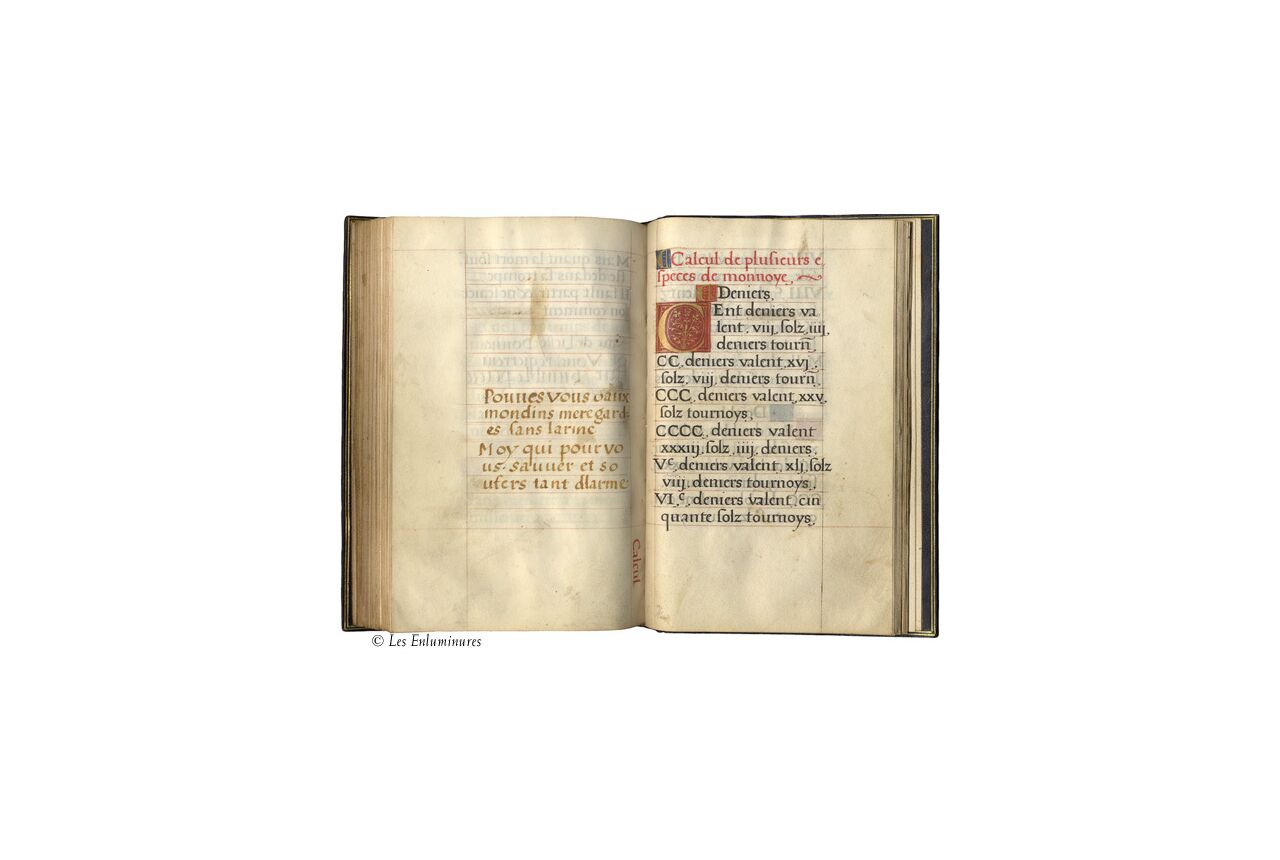 Pouues vous oaux
mondins mere gard-
es sans larme
Moy qui pour vo
us sauuer et so
ufers tant dlarme
Calcul
Calcul de plusieurs e
speces de monnoye.
Deniers.
CEnt deniers va
lent. viij. solz. iiij.
deniers tourñ.
CC. deniers valent. xvj.
solz. viij. deniers tourñ.
CCC. deniers valent. xxv.
solz tournoys.
CCCC. deniers valent
xxxiij. solz. iiij. deniers.
Vᶜ. deniers valent. xlj. solz
viij. deniers tournoys.
VI.ᶜ. deniers valent. cin
quante solz tournoys.
© Les Enluminures